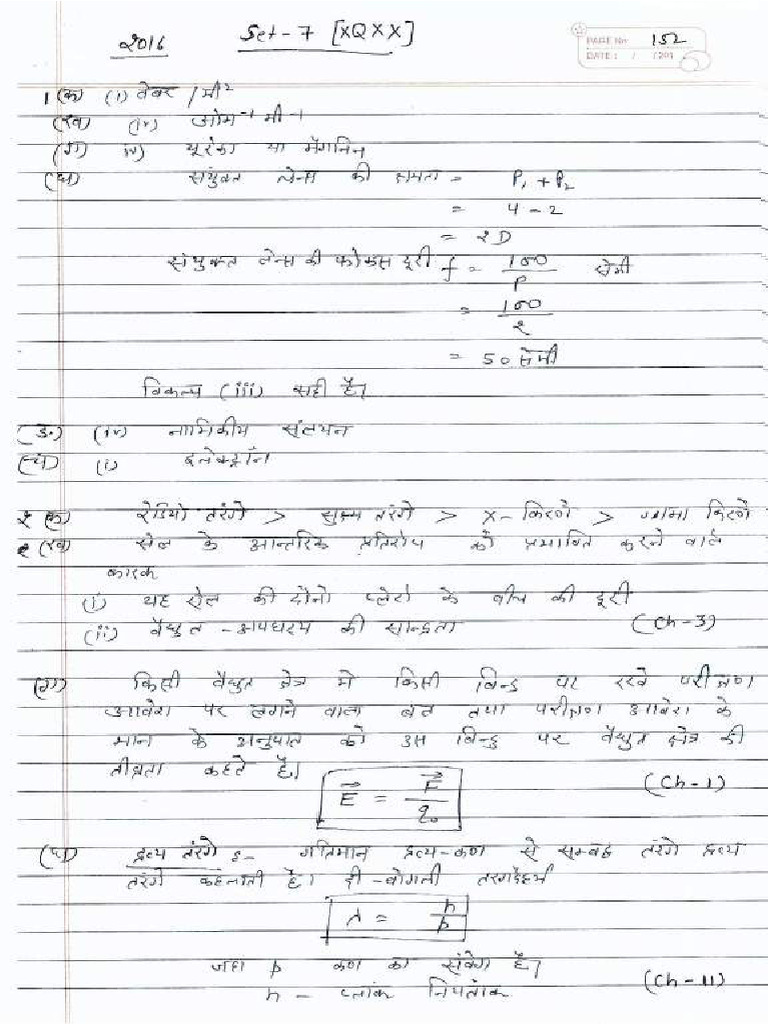 2016 Set-7 [XQXX] PAGE No. 152
DATE: / /201
1 (क) (i) वेबर /मी²
(ख) (iv) ओम⁻¹ मी⁻¹
(ग) iv) यूरेका या मैंगनिन
(घ) संयुक्त लेन्स की क्षमता = P₁ + P₂
= 4 - 2
= 2D
संयुक्त लेन्स की फोकस दूरी f = 100/P सेमी
= 100/2
= 50 सेमी
विकल्प (iii) सही है।
(ङ) (iv) नाभिकीय संलयन
(च) (i) इलेक्ट्रॉन
2 (क) रेडियो तरंगे > सुक्ष्म तरंगे > X- किरणे > गामा किरणे
2 (ख) सेल के आन्तरिक प्रतिरोध को प्रभावित करने वाले
कारक
(i) यह सेल की दोनो प्लेटो के बीच की दूरी
(ii) वैधुत -अपघटय की सान्द्रता (Ch-3)
(ग) किसी वैधुत क्षेत्र मे किसी बिन्दु पर रखे परीक्षण
आवेश पर लगने वाला बल तथा परीक्षण आवेश के
मान के अनुपात को उस बिन्दु पर वैधुत क्षेत्र की
तीव्रता कहते है।
E⃗ = F⃗/q₀ (Ch-1)
(घ) द्रव्य तरंगे :- गतिमान द्रव्य-कण से सम्बद्ध तरंगे द्रव्य
तरंगे कहलाती है। दी -ब्रोगली तरंगदैर्ध्य
λ = h/p
जहा p कण का संवेग है।
h - प्लांक नियतांक (Ch-11)